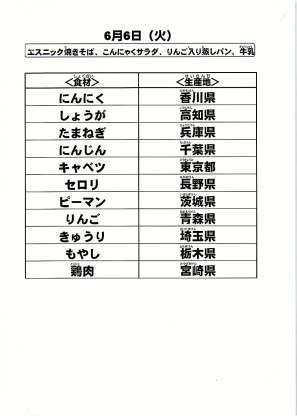 6月6日（火）
エスニック焼きそば、こんにゃくサラダ、りんご入り蒸しパン、牛乳
＜食材＞ ＜生産地＞
にんにく 香川県
しょうが 高知県
たまねぎ 兵庫県
にんじん 千葉県
キャベツ 東京都
セロリ 長野県
ピーマン 茨城県
りんご 青森県
きゅうり 埼玉県
もやし 栃木県
鶏肉 宮崎県